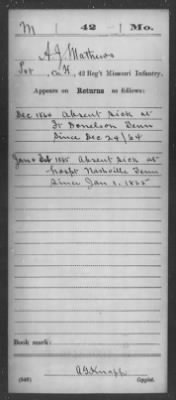 M 42 Mo.
A J Mathews
Pvt, Co. K, 42 Reg't Missouri Infantry.
Appears on Returns as follows:
Dec 1864 Absent Sick at
Ft Donelson Tenn
Since Dec 24/64
Jan & Feb 1865 Absent sick at
hospt Nashville Tenn
Since Jan 1, 1865
Book mark:
(546) A G Knapp
Copyist.